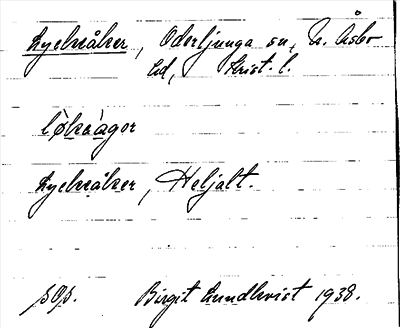 Lyckeåker, Oderljunga sn, N. Åsbo
hd, Krist. l.
Lyckeåker, Heljalt.
sOs. Birgit Lundkvist 1938.